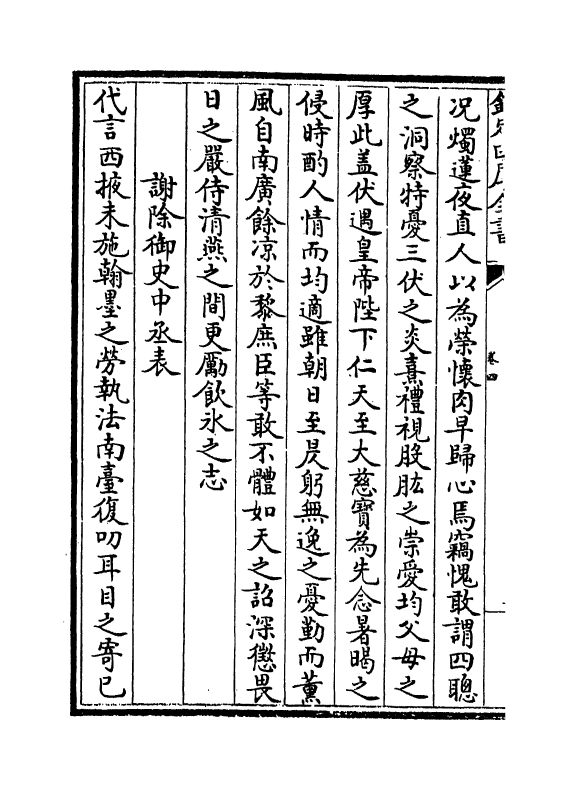 欽定四庫全書
卷四
况燭蓮夜直人以為榮懷肉早歸心焉竊愧敢謂四聰
之洞察特憂三伏之炎熹禮視股肱之崇愛均父母之
厚此盖伏遇皇帝陛下仁天至大慈寶為先念暑暍之
侵時酌人情而均適雖朝日至昃躬無逸之憂勤而薰
風自南廣餘凉於黎庶臣等敢不體如天之詔深懲畏
日之嚴侍清燕之間更厲飲氷之志
謝除御史中丞表
代言西掖未施翰墨之勞執法南臺復叨耳目之寄已